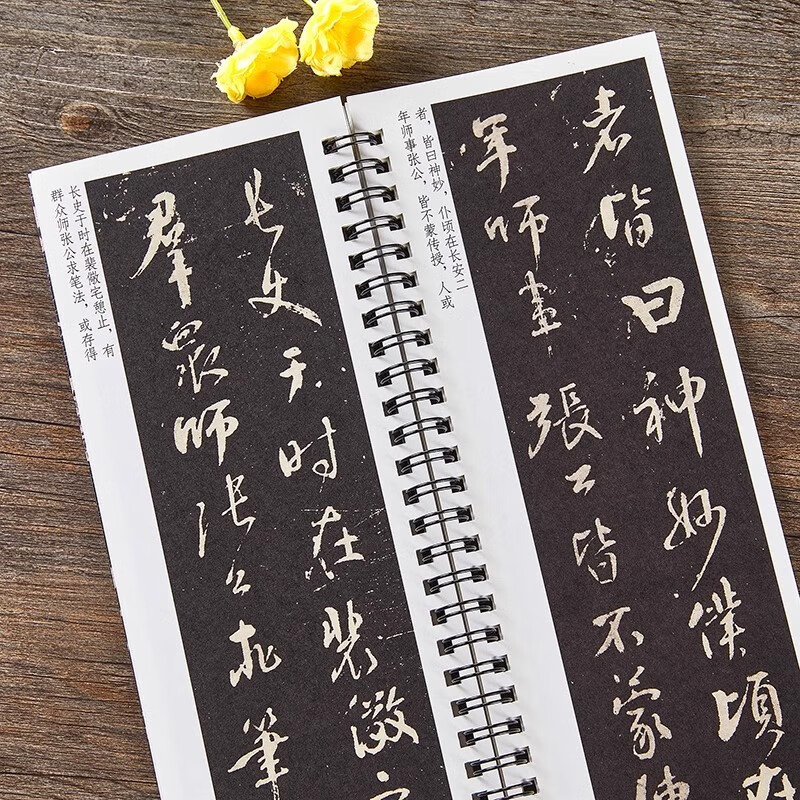 长史于时在裴儆
羣眾師张公求筆
长史于时在裴儆宅憩止，有
群众师张公求笔法，或存得
者皆曰神妙僕頃在
年師事張公皆不蒙傳
者，皆曰神妙，仆顷在长安二
年师事张公，皆不蒙传授，人或